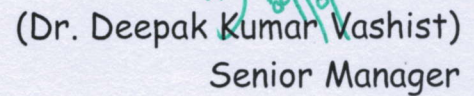 (Dr. Deepak Kumar Vashist)
Senior Manager